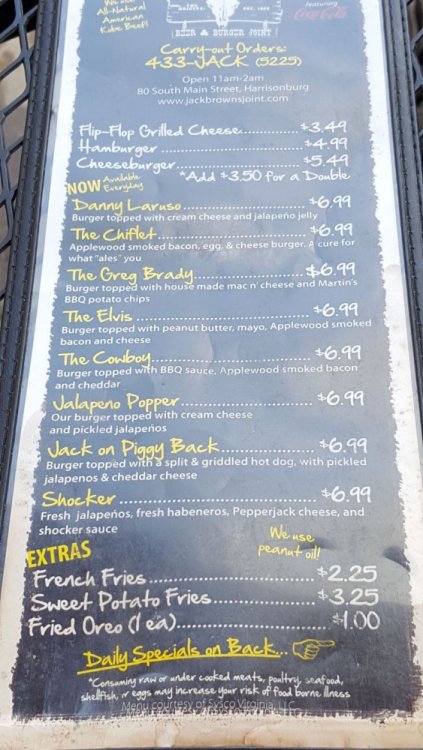 We use
All-Natural
American
Kobe Beef!
EST. 2009
BEER & BURGER JOINT
featuring
Coca-Cola
Carry-out Orders:
433-JACK (5225)
Open 11am-2am
80 South Main Street, Harrisonburg
www.jackbrownsjoint.com
Flip-Flop Grilled Cheese...................$3.49
Hamburger......................................$4.99
Cheeseburger.................................$5.49
*Add $3.50 for a Double
NOW Available Everyday
Danny Laruso.................................$6.99
Burger topped with cream cheese and jalapeño jelly
The Chiflet......................................$6.99
Applewood smoked bacon, egg, & cheese burger. A cure for
what "ales" you
The Greg Brady..............................$6.99
Burger topped with house made mac n' cheese and Martin's
BBQ potato chips
The Elvis........................................$6.99
Burger topped with peanut butter, mayo, Applewood smoked
bacon and cheese
The Cowboy...................................$6.99
Burger topped with BBQ sauce, Applewood smoked bacon
and cheddar
Jalapeno Popper............................$6.99
Our burger topped with cream cheese
and pickled jalapeños
Jack on Piggy Back........................$6.99
Burger topped with a split & griddled hot dog, with pickled
jalapenos & cheddar cheese
Shocker.........................................$6.99
Fresh jalapeños, fresh habeneros, Pepperjack cheese, and
shocker sauce
We use
peanut oil!
EXTRAS
French Fries...................................$2.25
Sweet Potato Fries.........................$3.25
Fried Oreo (1 ea).............................$1.00
Daily Specials on Back...
*Consuming raw or under cooked meats, poultry, seafood,
shellfish, or eggs may increase your risk of food borne illness
Menu courtesy of Sysco Virginia, LLC